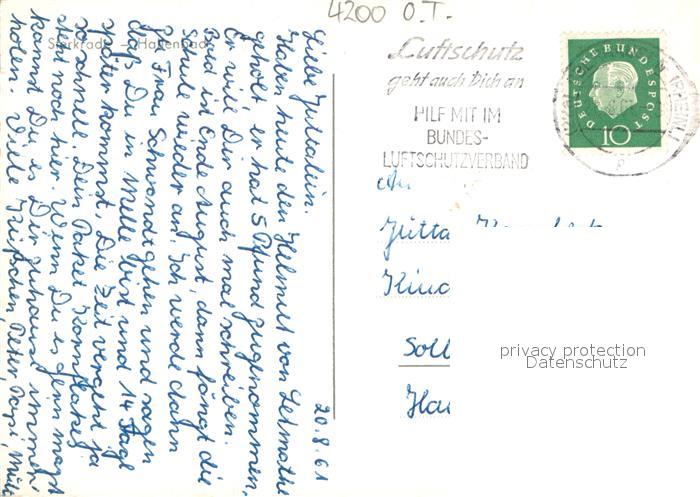 4200 O.T.
Sterkrade - Hallenbad
20.8.61
Liebe Juttalein.
Haben heute den Helmut von Letmathe
geholt er hat 5 Pfund zugenommen.
Er will Dir auch mal schreiben.
Bald ist Ende August, dann fängt die
Schule wieder an. Ich werde dann
zu Frau Schwondt gehen und sagen
daß Du in Melle bist und 14 Tage
später kommst. Die Zeit vergeht ja
so schnell. Dein Paket Kornflakes
steht noch hier. Wenn Du es gern magst
kannst Du es Dir zuhause immer
holen. Viele Küßchen, Peter, Papi, Mutti
Luftschutz
geht auch Dich an
HILF MIT IM
BUNDES-
LUFTSCHUTZVERBAND
DEUTSCHE BUNDESPOST
10
An
Jutta
Kind
Soll
Hau
privacy protection
Datenschutz